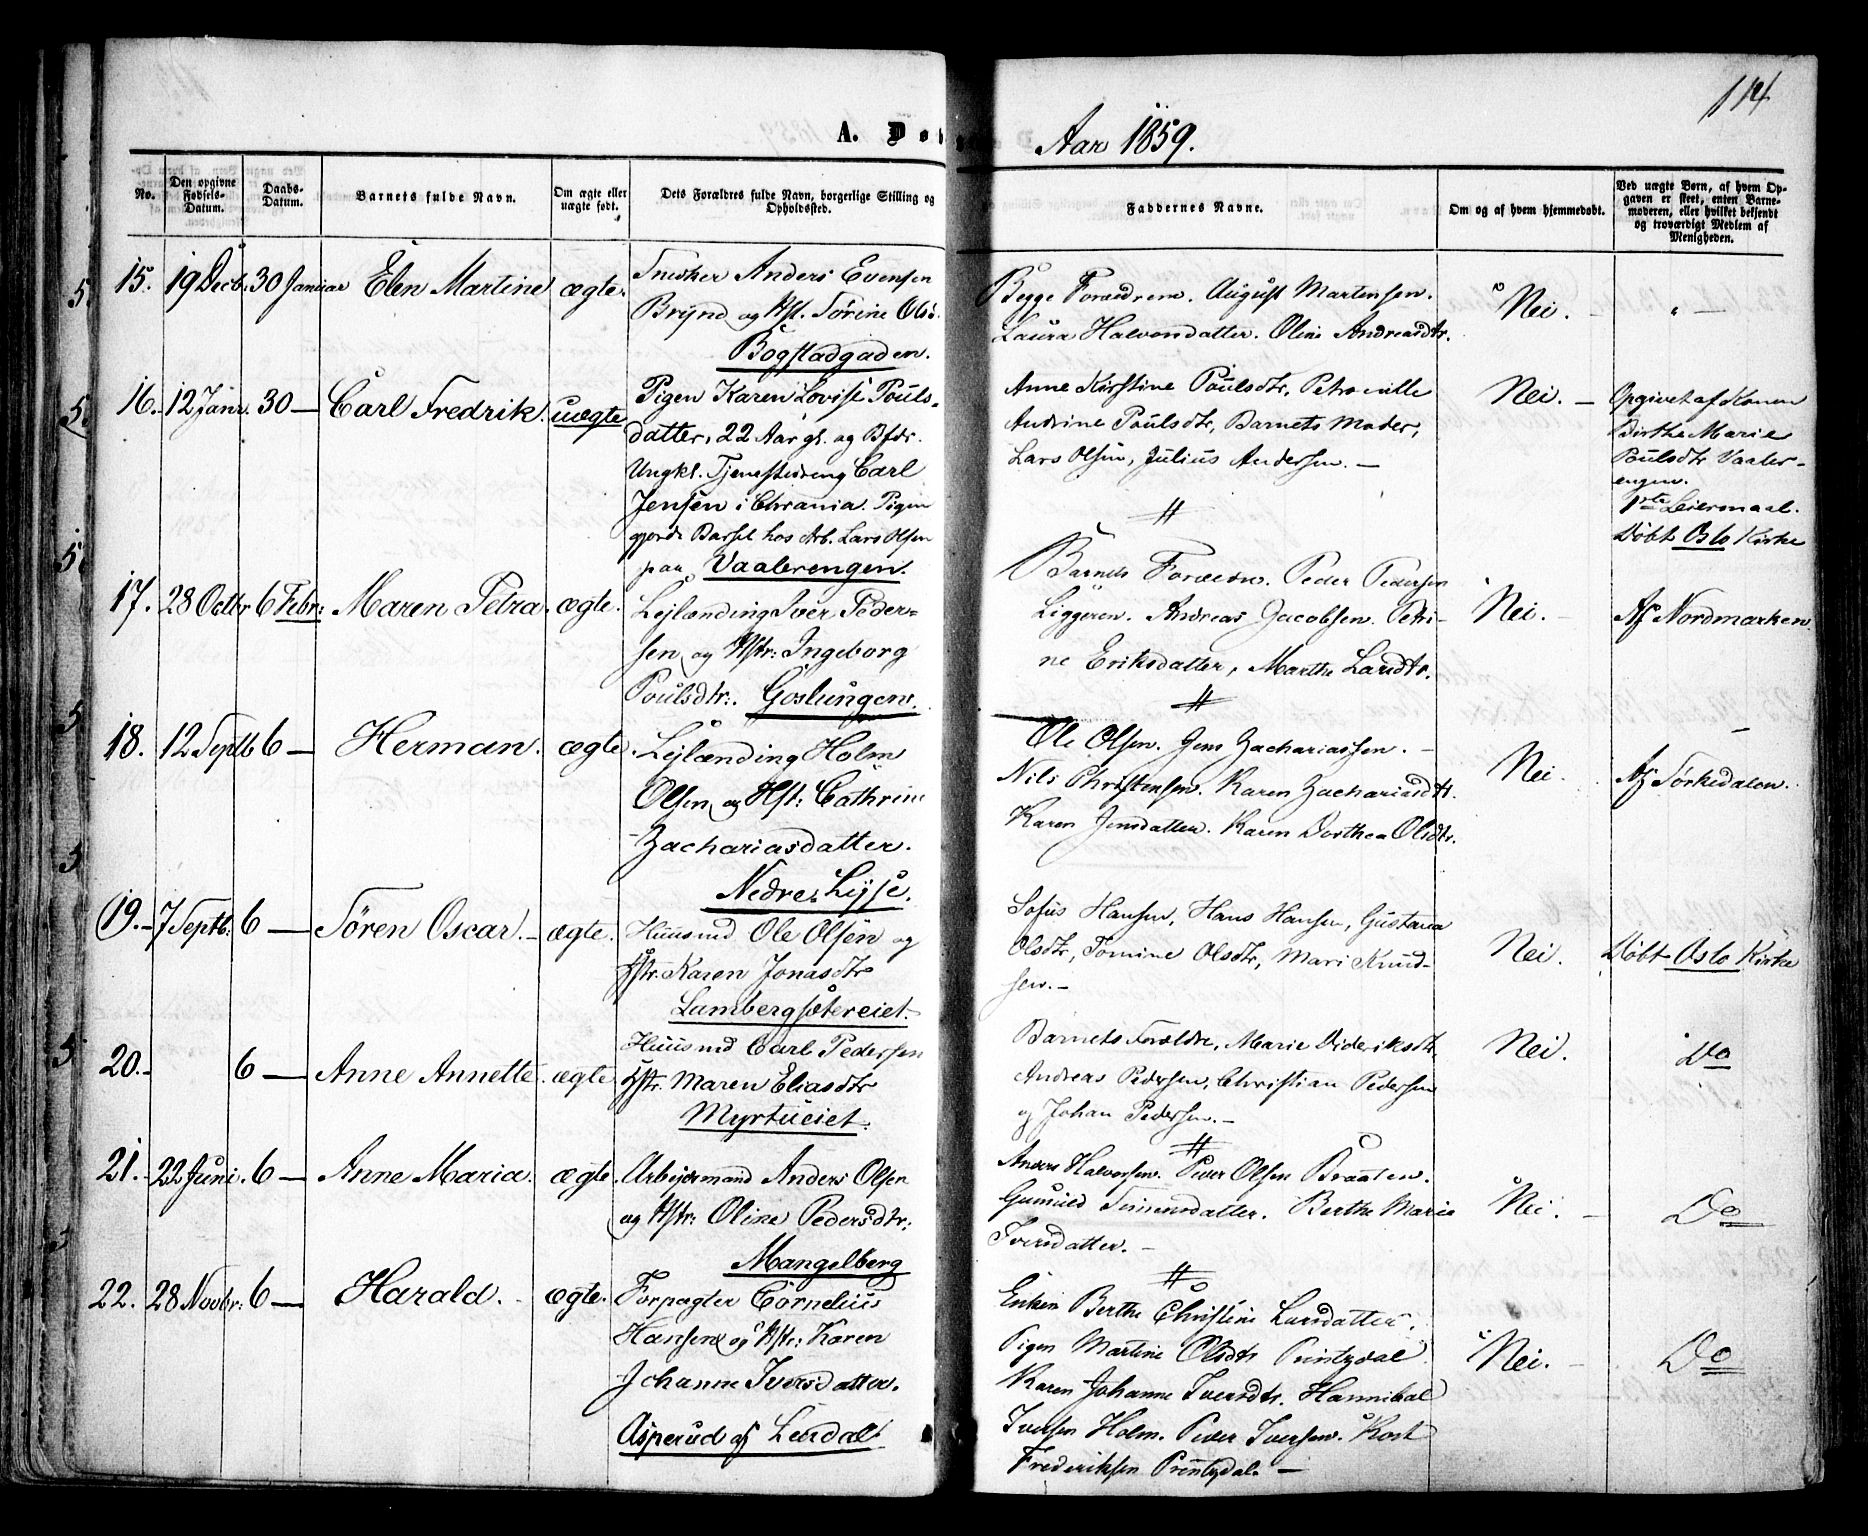 114
A. Døb
Aar 1859.
No.
Den opgivne Fødsels-Datum.
Daabs-Datum.
Barnets fulde Navn.
Om ægte eller uægte født.
Dets Forældres fulde Navn, borgerlige Stilling og Opholdssted.
Faddernes Navne.
Om og af hvem hjemmedøbt.
Ved uægte Børn, af hvem Opgaven er skeet, enten Barnemoderen, eller hvilket bekjendt og troværdigt Medlem af Menigheden.
15. 19 Decb. 30 Januar Elen Martine ægte.
Snedker Anders Evensen
Brynd og Hst. Sørine Ols
Bogstadgaden.
Begge Forældrene. August Martensen.
Laura Halvorsdatter. Oline Andreasdtr.
Nei. –
„ –
16. 12 Janr. 30 – Carl Fredrik. uægte
Pigen Karen Lovise Pouls-
datter, 22 Aar gl. og Bfdr.
Ungkl. Tjenestedreng Carl
Jensen i Chrania. Pigen
gjorde Barsel hos Arb. Lars Olsen
paa Vaalerengen.
Anne Kirstine Poulsdtr, Petronille
Andrine Poulsdtr, Barnets Moder,
Lars Olsen, Julius Andersen. –
Nei. –
Opgivet af Konen
Birthe Marie
Poulsdtr Vaaler-
engen.
1ste Leiermaal.
Døbt Oslo Kirke
17. 28 Octbr 6 Febr: Maren Petra. ægte.
Lejlænding Iver Peder-
sen og Hstr: Ingeborg
Poulsdtr: Goslungen.
Barnets Forældre. Peder Pedersen
Liggeren. Andreas Jacobsen. Petri-
ne Eriksdatter, Marthe Larsdtr.
Nei. –
Af Nordmarken.
18. 12 Septb 6 – Herman. ægte.
Lejlænding Holm
Olsen og Hst: Cathrine
Zachariasdatter.
Nedre Lysje.
Ole Olsen. Jens Zachariassen. –
Nils Christensen. Karen Zachariasdtr.
Karen Jensdatter. Karen Dorthea Olsdtr.
Nei. –
Af Sørkedalen.
19. – 7 Septb: 6 – Sören Oscar. – ægte.
Huusmd Ole Olsen og
Hstr. Karen Jonasdtr
Lambergsætereiet.
Sofus Hansen, Hans Hansen, Gustava
Olsdtr, Tomine Olsdtr, Mari Knud-
sen. –
Nei.
Døbt Oslo Kirke
20. – 6 – Anne Annette. ægte
Huusmd Carl Pedersen
Hstr. Maren Eliasdtr
Myrtueiet.
Barnets Forældre, Marie Dideriksdtr,
Andreas Pedersen, Christian Pedersen
og Johan Pedersen. –
Nei.
Do
21. – 22 Juni. 6 – Anne Maria. ægte.
Arbejdermand Anders Olsen
og Hstr: Oline Pedersdtr:
Mangelberg
Anders Halvorsen. Peder Olsen Braaten.
Gunild Simensdatter. Berthe Marie
Iversdatter. –
Nei. –
Do
22. 28 Novbr: 6 – Harald. ægte.
Forpagter Cornelius
Hansen og Hstr: Karen
Johanne Iversdatter.
Asperud af
Enken Berthe Christine Larsdatter.
Pigen Martine Olsdtr
Karen Johanne Iversdtr. Hannibal
Iversen Holm. Peder Iversen.
Frederiksen
Nei. –
Do